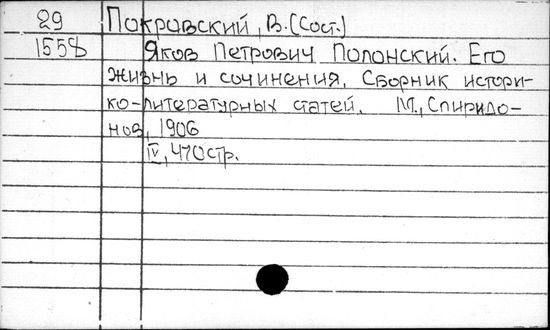 29 Покровский, В. (Сост.)
1558 Яков Петрович Полонский. Его
жизнь и сочинения. Сборник истори-
ко-литературных статей. М., Спиридо-
нов, 1906
IV, 470стр.